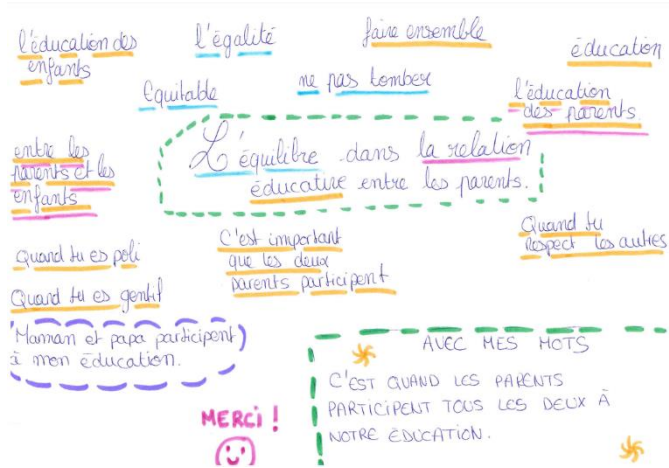 l'éducation des
enfants
l'égalité
faire ensemble
éducation
Equitable
ne pas tomber
l'éducation
des parents
entre les
parents et les
enfants
L'équilibre dans la relation
éducative entre les parents.
Quand tu es poli
Quand tu es gentil
C'est important
que les deux
parents participent
Quand tu
respect les autres
Maman et papa participent
à mon éducation.
MERCi !
AVEC MES MOTS
C'EST QUAND LES PARENTS
PARTICIPENT TOUS LES DEUX À
NOTRE ÉDUCATION.